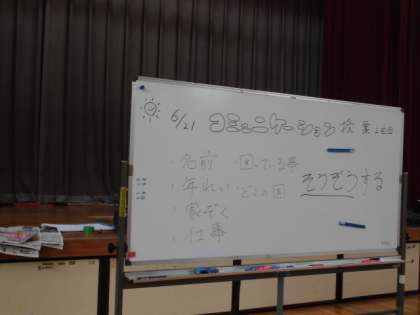 6/21 コミュニケーション授業 2回目
・名前
・困っている事
・年れい
・どこの国
そうぞうする
・家ぞく
・仕事